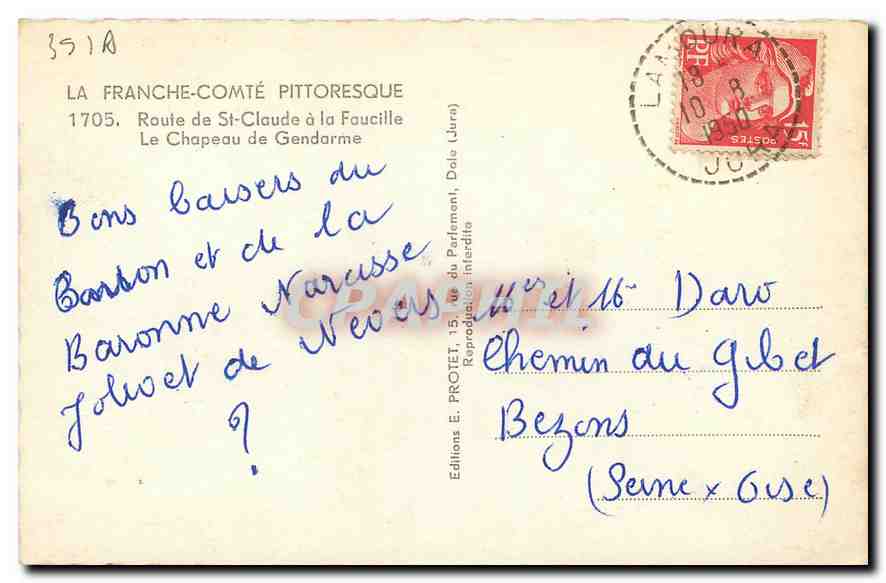 351A
LA FRANCHE-COMTÉ PITTORESQUE
1705. Route de St-Claude à la Faucille
Le Chapeau de Gendarme
Bons baisers du
Baron et de la
Baronne Narcisse
Jolivet de Nevers
?
Editions E. PROTET, 15, rue du Parlement, Dole (Jura)
Reproduction interdite
LAMOURA
18
10 8
1950
JURA
RF
15F
POSTES
Mer et Me Daro
Chemin du Gibet
Bezons
(Seine x Oise)
CPARAMA